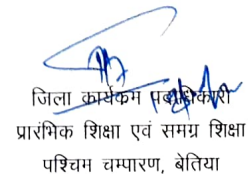 जिला कार्यकम पदाधिकारी
प्रारंभिक शिक्षा एवं समग्र शिक्षा
पश्चिम चम्पारण, बेतिया